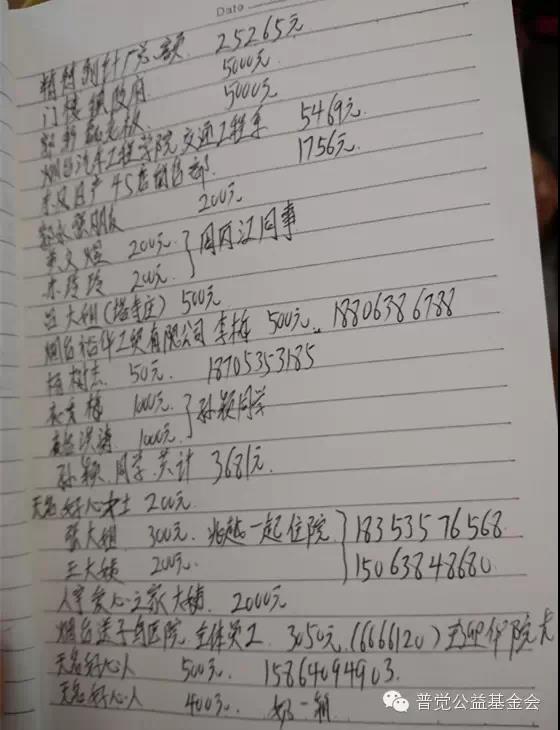 Date
总额 25265元
5000元
5000元
烟台汽车工程学院交通工程系 5469元
东风日产4S店销售部 1756元
200元
200元 同事
玲玲 200元
吕大姐(塔寺庄) 500元
烟台裕华工贸有限公司 李梅 500元 18806386788
杨树志 50元 18705353185
1000元 孙颖同学
洪涛 1000元
孙颖同学共计 3681元
无名好心女士 200元
张大姐 300元 一起住院 18353576568
王大姨 200元 15063848680
爱心之家大姨 2000元
烟台送子鸟医院全体员工 3050元 (6666120) 院长
无名好心人 500元 15864094903
无名好心人 400元
普觉公益基金会